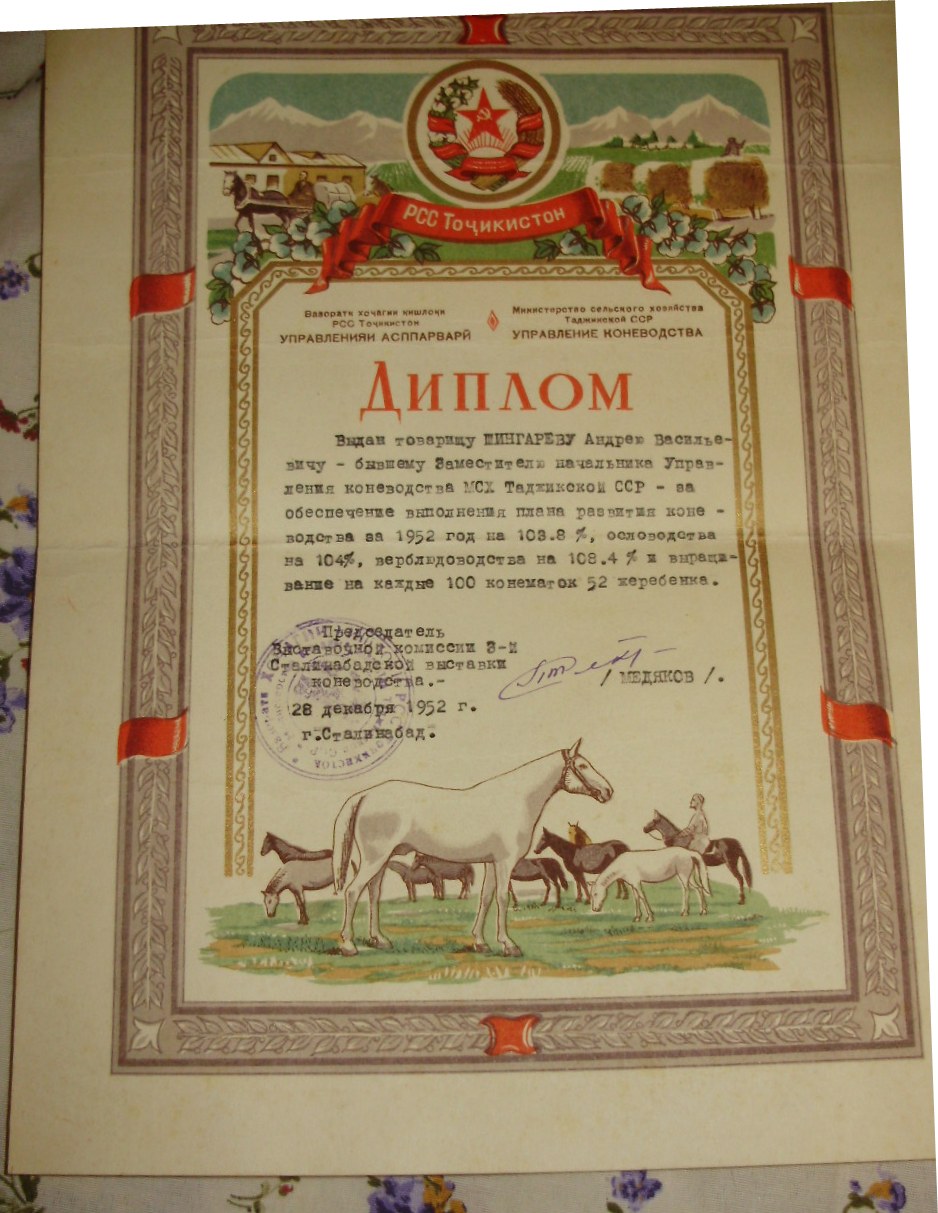 РСС Тоҷикистон
Вазорати хоҷагии қишлоқи
РСС Тоҷикистон
УПРАВЛЕНИЯИ АСППАРВАРӢ
Министерство сельского хозяйства
Таджикской ССР
УПРАВЛЕНИЕ КОНЕВОДСТВА
ДИПЛОМ
Выдан товарищу ШИНГАРЕВУ Андрею Василье-
вичу - бывшему Заместителю начальника Управ-
ления коневодства МСХ Таджикской ССР - за
обеспечение выполнения плана развития коне -
водства за 1952 год на 103.8 %, ословодства
на 104%, верблюдоводства на 108.4 % и выращи-
вание на каждые 100 конематок 52 жеребенка.
Председатель
Выставочной комиссии 3-й
Сталинабадской выставки
коневодства.-
/ МЕДЯКОВ /.
28 декабря 1952 г.
г.Сталинабад.